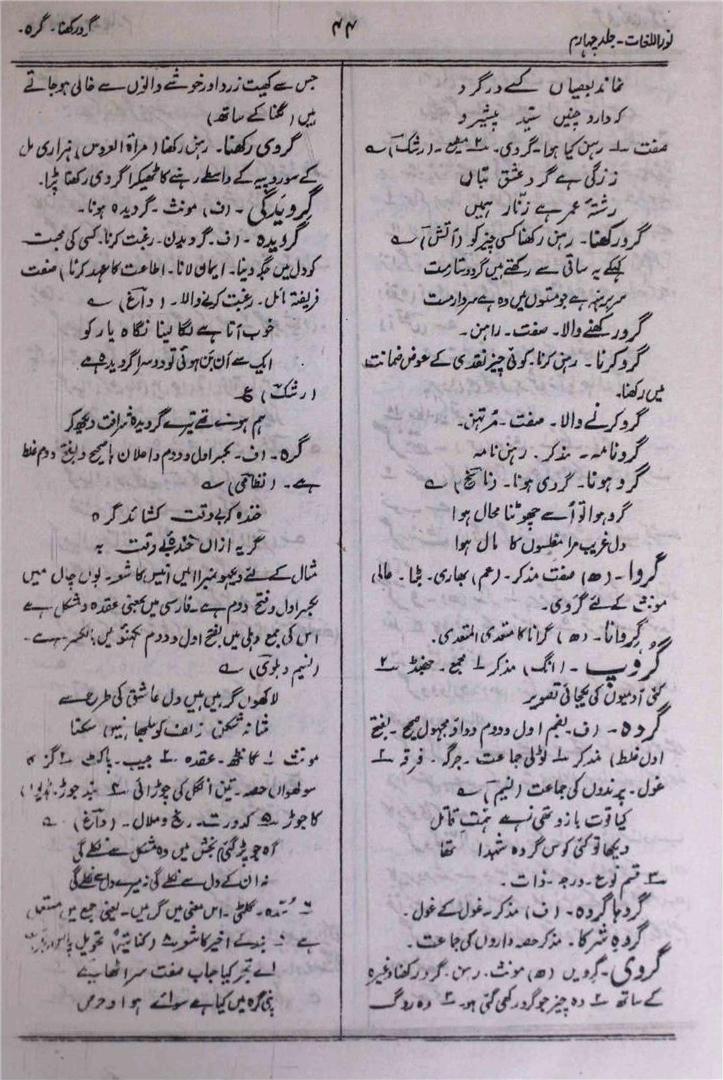 نوراللغات۔ جلد چہارم
۴۴
گرو رکھنا۔ گرہ۔
نماند بعصیاں کسے در گرو
کہ دارد چنیں سید پیشرو
صفت ۱؎ رہن کیا ہوا۔ گروی۔ ۲؎ مطیع۔ (رشک) ؎
زندگی ہے گرو عشق بتاں
رشتۂ عمر ہے زنّار ہمیں
گرو رکھنا۔ رہن رکھنا کسی چیز کو (آتش) ؎
سربرہنہ ہے جو مستوں میں وہ ہے سردار مست
گرو رکھنے والا۔ صفت۔ راہن۔
گرو کرنا۔ رہن کرنا۔ کوئی چیز نقدی کے عوض ضمانت
میں رکھنا۔
گرو کرنے والا۔ صفت۔ مُرتہن۔
گرو نامہ۔ مذکر۔ رہن نامہ
گرو ہونا۔ گروی ہونا۔ (ناسخ) ؎
گرو ہوا تو اُسے چھوٹنا محال ہوا
دل غریب مرا مفلسوں کا مال ہوا
گروا۔ (ھ) صفت مذکر۔ (عم) بھاری۔ عالی
مونث کے لئے گروی۔
گروانا۔ (ھ) گرانا کا متعدی المتعدی۔
گروپ۔ (انگ) مذکر ۱؎ مجمع۔ جھنڈ ۲؎
کئی آدمیوں کی یکجائی تصویر
گروہ۔ (ف۔ بضم اول و دوم و واو مجہول صحیح۔ بفتح
اول غلط) مذکر ۱؎ ٹولی جماعت۔ جرگہ۔ فرقہ ۲؎
غول۔ پرندوں کی جماعت (نسیم) ؎
کیا قوت بازو تھی ترے قاتل
دیکھا تو کئی کوس گروہ شہدا تھا
۳؎ قسم نوع۔ درجہ۔ ذات۔
گروہا گروہ۔ (ف) مذکر۔ غول کے غول۔
گروہِ شرکا۔ مذکر حصہ داروں کی جماعت۔
گروی۔ گرویں (ھ) مونث۔ رہن۔ گرو رکھنا وغیرہ
کے ساتھ ۱؎ وہ چیز جو گرو رکھی گئی ہو۔ ۲؎ وہ روگ
جس سے کھیت زرد اور خوشے دانوں سے خالی ہو جاتے
ہیں (لگنا کے ساتھ)
گروی رکھنا۔ رہن رکھنا (مراۃ العروس) ہزاری مل
کے سو روپیہ کے واسطے رہنے کا ٹھیکرا گروی رکھنا پڑا۔
گرویدگی۔ (ف) مونث۔ گرویدہ ہونا۔
گرویدہ۔ (ف۔ گرویدن۔ رغبت کرنا۔ کسی کی محبت
کو دل میں جگہ دینا۔ ایمان لانا۔ اطاعت کا عہد کرنا) صفت
فریفتہ مائل۔ رغبت کرنے والا۔ (داغ) ؎
خوب آتا ہے لگا لینا نگاہ یار کو
ایک سے اَن بَن ہوئی تو دوسرا گرویدہ ہے
(رشک) ع
ہم ہوئے تھے تیرے گرویدہ شرافت دیکھ کر
گرہ۔ (ف۔ بکسر اول و دوم و اعلان ہا صحیح و بفتح دوم غلط
ہے۔ (نظامی) ؎
خندہ کہ بے وقت کشاند گرہ
گریہ ازاں خندۂ بے وقت بہ
مثال کے لئے دیکھو انیس کا شعر۔ بول چال میں
بکسر اول و فتح دوم ہے۔ فارسی میں بمعنی عقدہ و مشکل ہے
اس کی جمع دہلی میں بفتح اول و دوم لکھنؤ میں بالکسر ہے۔
(نسیم دہلوی) ؎
لاکھوں گرہیں ہیں دل عاشق کی طرح سے
شانہ شکن زلف کو سلجھا نہیں سکتا
مونث ۱؎ گانٹھ۔ عقدہ ۲؎ جیب۔ پاکٹ ۳؎ گز کا
سولھواں حصہ۔ تین انگل کی چوڑائی ۴؎ بند جوڑ۔
کا جوڑ ۵؎ کدورت۔ رنج و ملال۔ (داغ) ؎
آہ جو پڑ گئی رنجش میں وہ مشکل سے نکلے گی
نہ ان کے دل سے نکلے گی نہ میرے دل سے نکلے گی
۶؎ غدہ۔ گلٹی۔ اس معنی میں گرہیں۔ یعنی جمع میں مستعمل
ہے ۷؎ بند کے اخیر کا شعر ۸؎ (کنایۃً) تحویل
اے بحر کیا حباب صفت سر اٹھایئے
اپنی گرہ میں کیا ہے سوائے ہوا و حرص